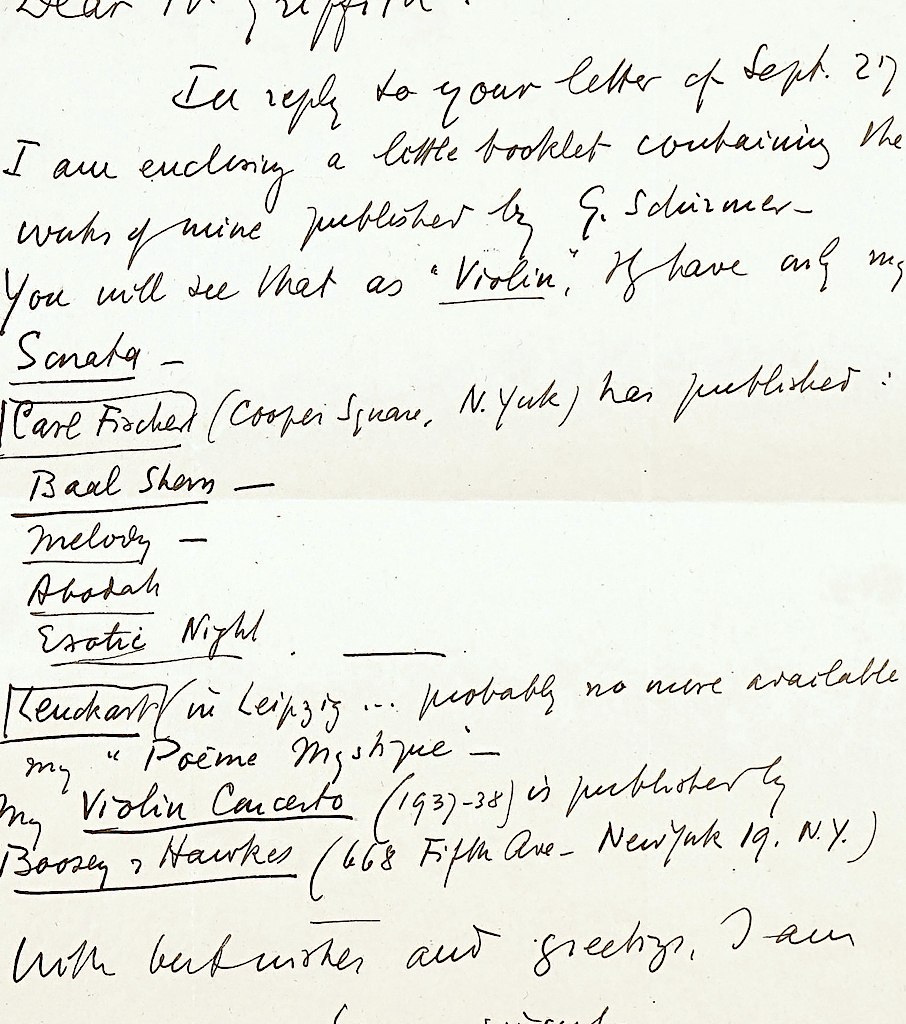 Dear Mr. Griffith:
In reply to your letter of Sept. 27
I am enclosing a little booklet containing the
works of mine published by G. Schirmer –
You will see that as "Violin", they have only my
Sonata –
Carl Fischer (Cooper Square, N. York) has published :
Baal Shem —
Melody –
Abodah
Exotic Night
Leuckart (in Leipzig ... probably no more available
my "Poème Mystique" –
My Violin Concerto (1937-38) is published by
Boosey & Hawkes (668 Fifth Ave – New York 19. N.Y.)
With best wishes and greetings, I am